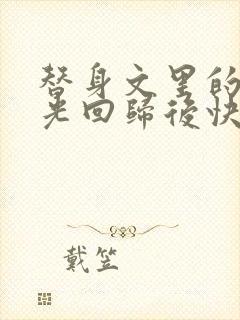 替身文里的
光回歸後快
戴笠